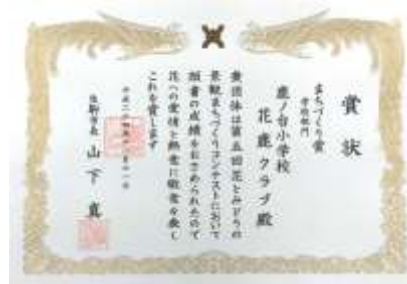 賞状
まちづくり賞
学校部門
鹿ノ台小学校
花鹿クラブ殿
貴団体は第五回花とみどりの
景観まちづくりコンテストにおいて
頭書の成績をおさめられたので
花への愛情と熱意に敬意を表し
これを賞します
生駒市長 山下真